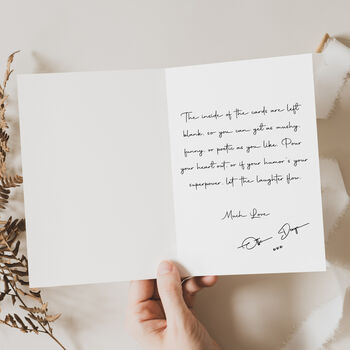 The inside of the cards are left
blank so you can get as mushy,
funny, or poetic as you like. Pour
your heart out or if your humor's your
superpower let the laughter flow.
Much Love